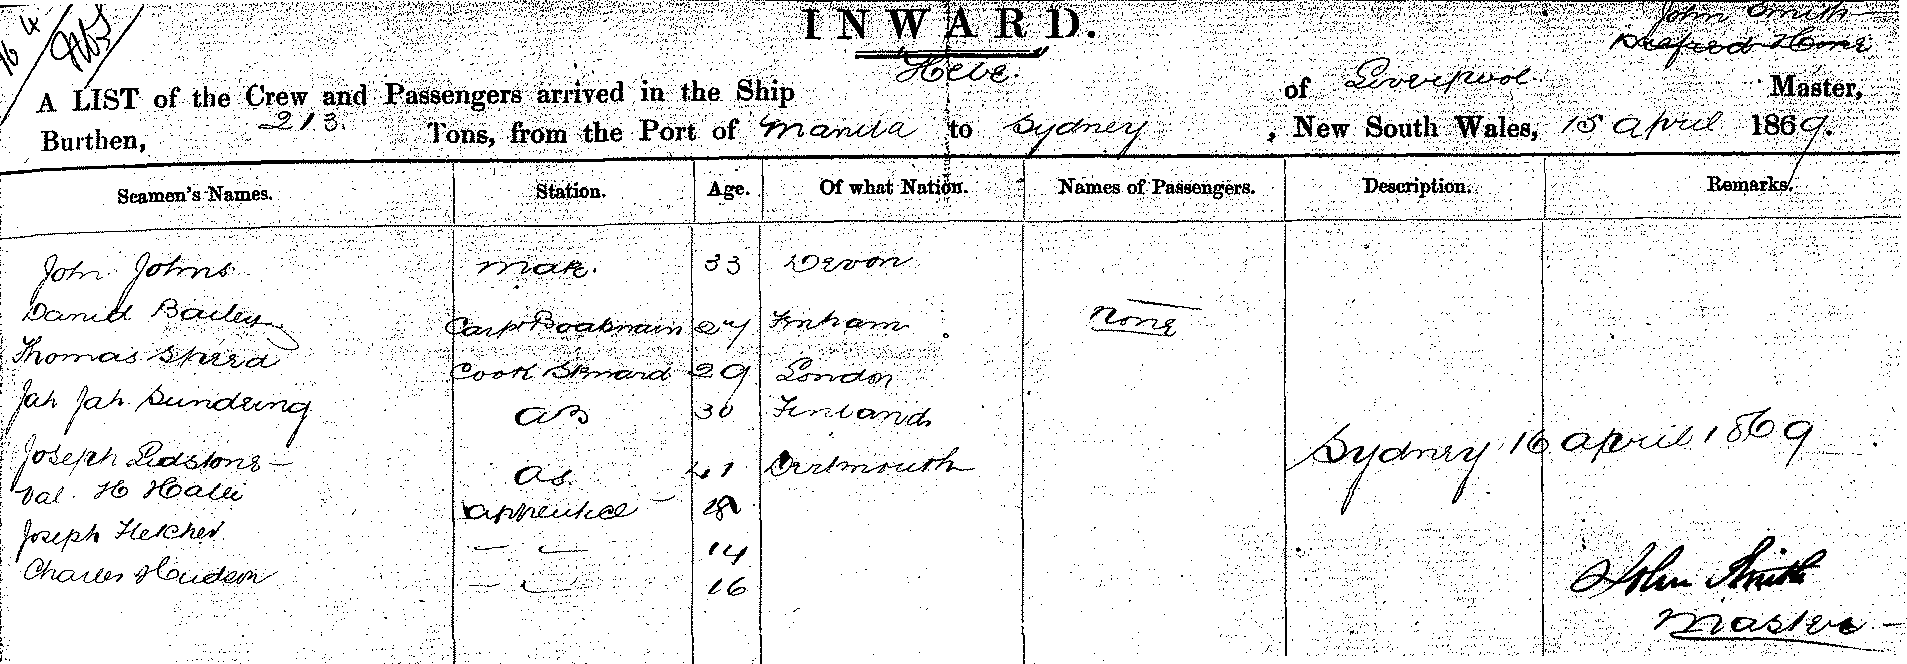 16 4
INWARD.
John Smith
Hebe.
A LIST of the Crew and Passengers arrived in the Ship of Liverpool Master,
Burthen, 213. Tons, from the Port of Manila to Sydney, New South Wales, 15 April 1869.
Seamen's Names. Station. Age. Of what Nation. Names of Passengers. Description. Remarks.
John Johns mate. 33 Devon
Daniel Bailey Carp Boatswain 27 none
Thomas Cook Steward 29 London
Jah Jah Sundering AB 30 Finland
Joseph Lidstone 41 Dartmouth
Sydney 16 April 1869
Val. H apprentice 18
Joseph Fletcher 14
Charles Hudson 16
John Smith
Master